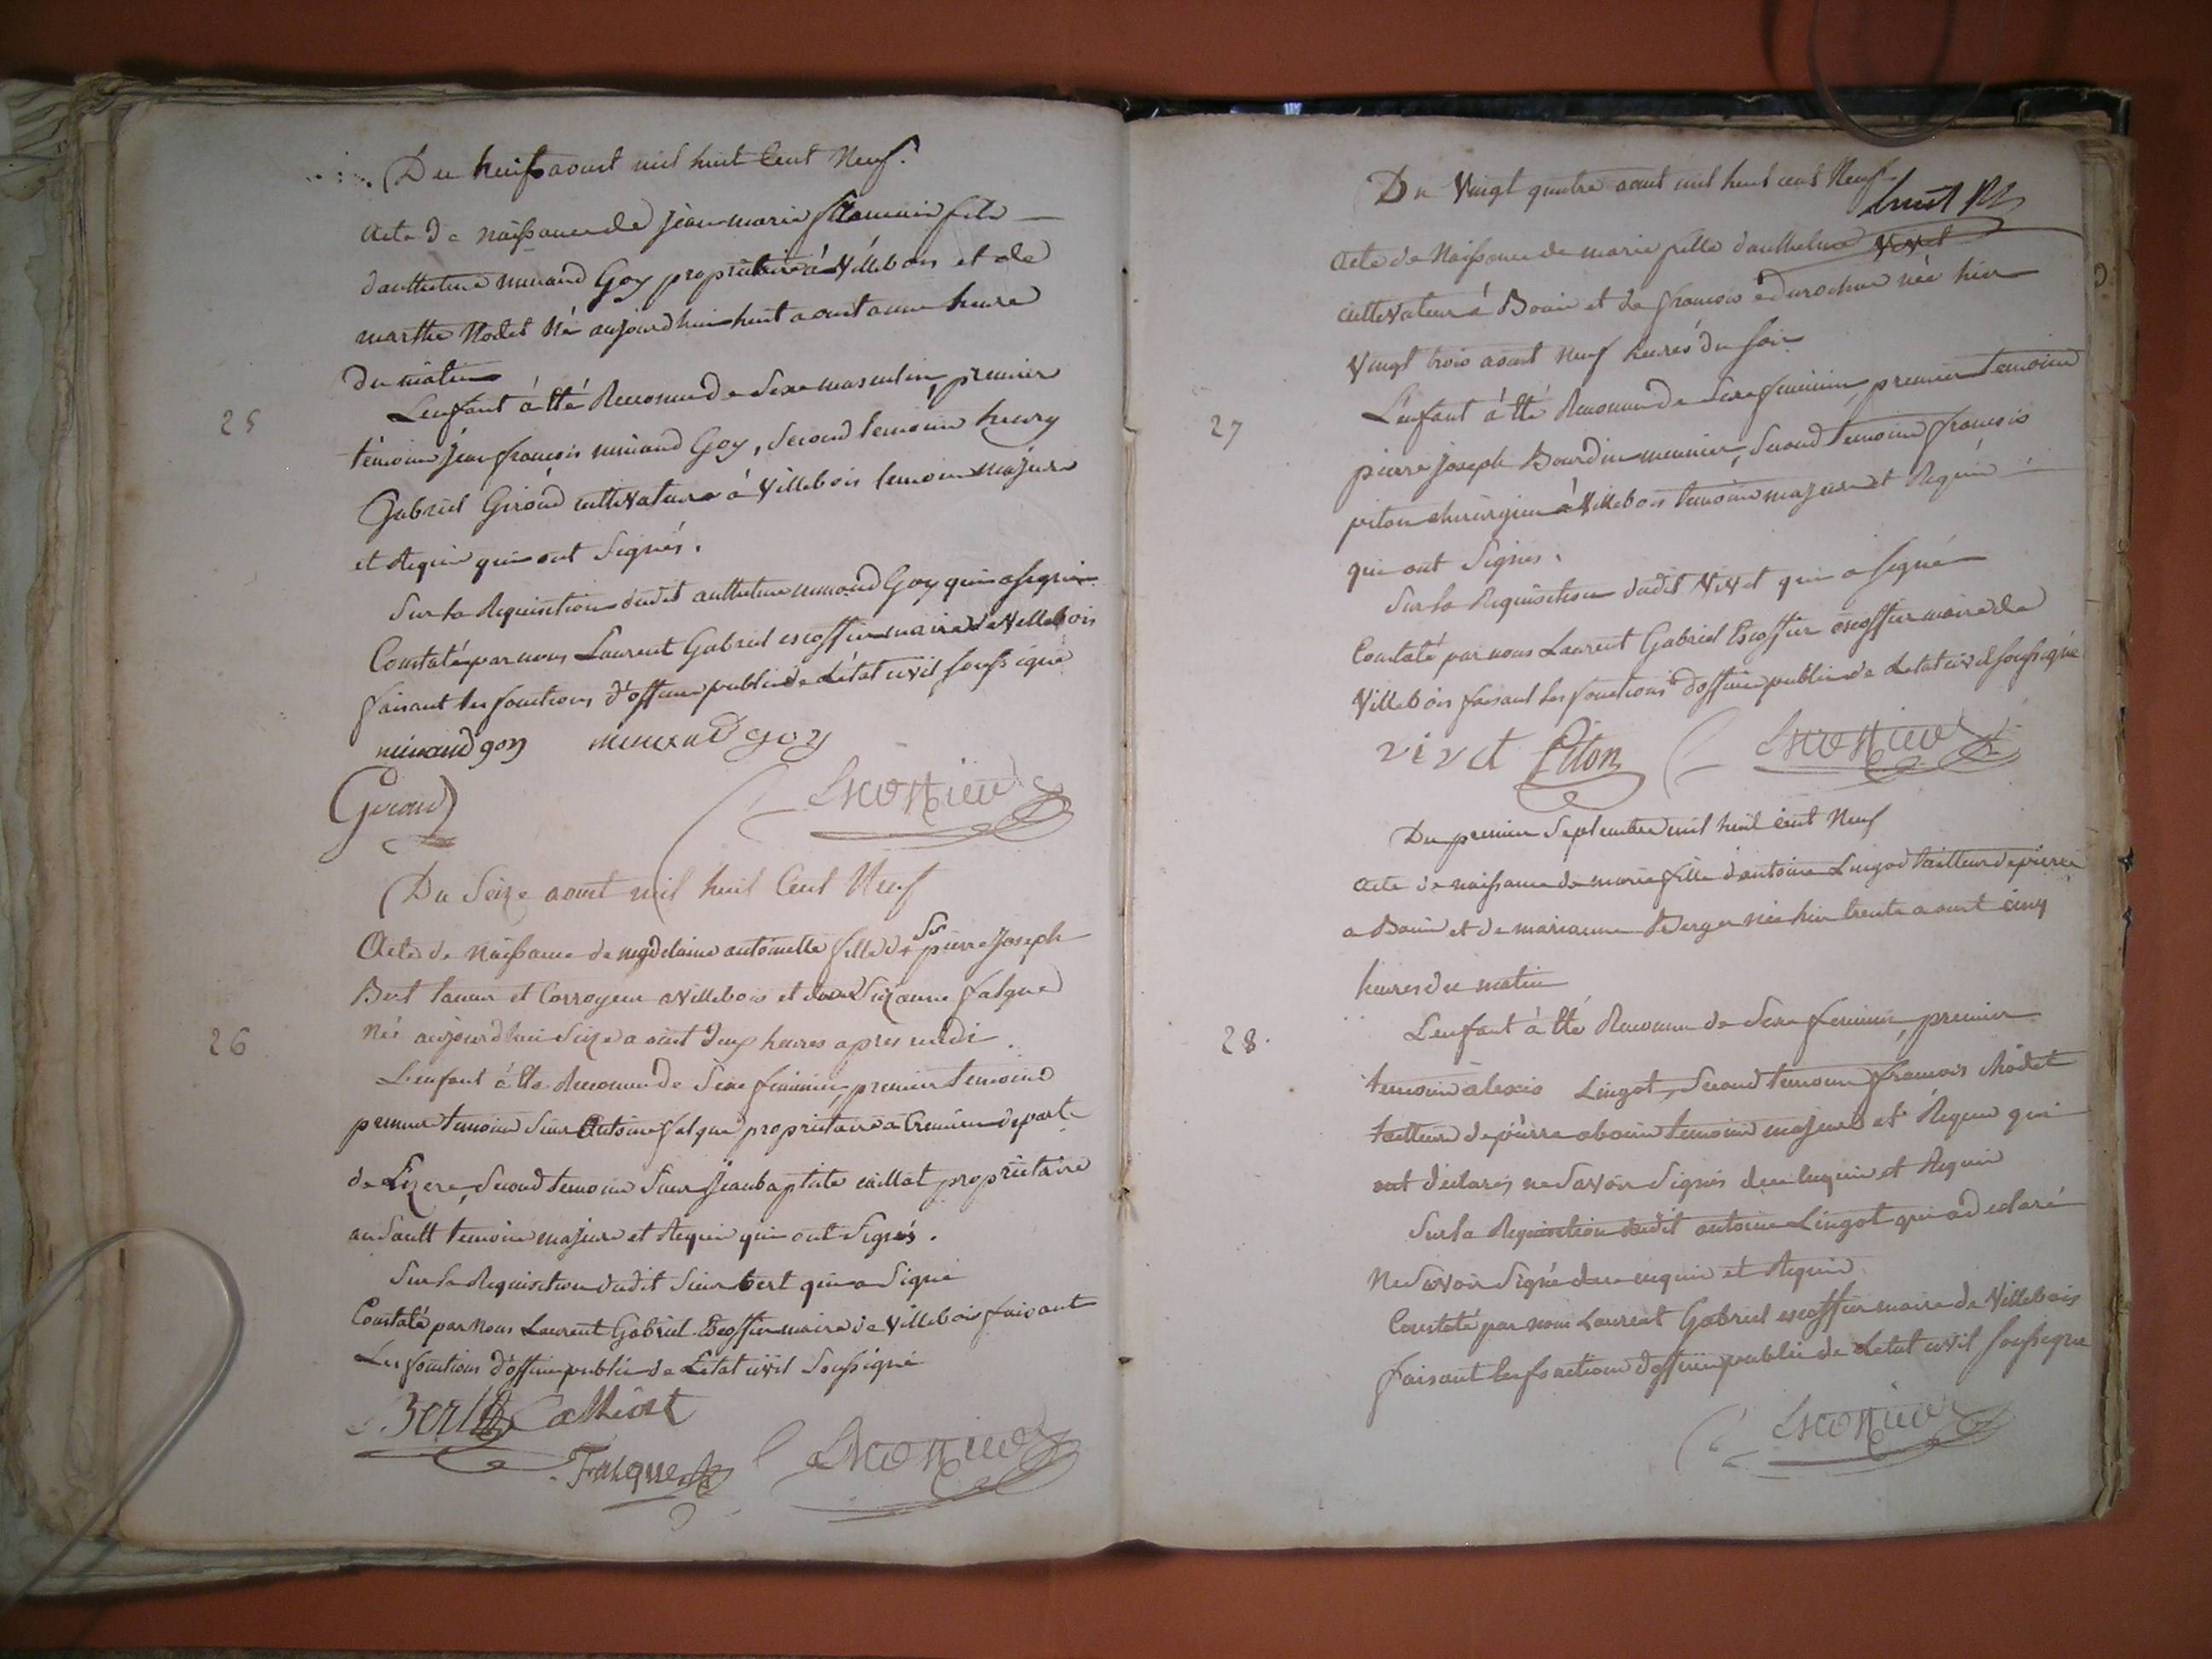 Du huit aoust mil huit Cent Neuf.
acte de naissance de jean marie fils
d'anthelme minand Goy propriétaire à Villebois et de
marthe Rodet Né aujourdhui huit aoust a une heure
du matin
25
L'enfant à été Reconnu de Sexe masculin, premier
témoin jean françois minand Goy, Second temoin henry
Gabriel Giroud cultivateur à Villebois temoin majeur
et Requis qui ont Signés.
Sur la Requisition dudit anthelme minand Goy qui a signé
Constaté par nous Laurent Gabriel escoffier maire de Villebois
faisant les fonctions d'officier public de L'état civil soussigné
minand goy minand goy
Giroud
Escoffier
Du Seize aoust mil huit Cent Neuf
Acte de Naissance de magdelaine antoinette fille de Sr pierre Joseph
Bert tanneur et Corroyeur a Villebois et de Suzanne falque
Née aujourdhui Seize aoust Deux heures apres midi
26
L'enfant à été Reconnu de Sexe feminin, premier temoin
premier temoin Sieur Antoine falque propriétaire a Cremieu depart.
de L'izere, Second temoin Sieur Jean baptiste caillat propriétaire
au Sault temoin majeur et Requis qui ont Signés.
Sur la Requisition dudit Sieur bert qui a Signé
Constaté par Nous Laurent Gabriel Escoffier maire de Villebois faisant
Les fonctions d'officier public de L'état civil Soussigné
Bert Calliat
Falque
Escoffier
Du Vingt quatre aout mil huit cent Neuf
Acte de Naissance de marie fille d'anthelme Vivet
cultivateur à Bouis et de françoise durochat née hier
Vingt trois aoust Neuf heures du soir
27
L'enfant à été Reconnu de Sexe feminin, premier temoin
pierre joseph Bourdin meunier, Second temoin françois
piton chirurgien à Villebois temoin majeur et Requis
qui ont Signés.
Sur la Requisition dudit Vivet qui a signé
Constaté par nous Laurent Gabriel Escoffier escoffier maire de
Villebois faisant les fonctions d'officier public de L'etat civil soussigné
vivet Piton
Escoffier
Du premier Septembre mil huit cent Neuf
acte de naissance de marie fille d'antoine Lingot tailleur de pierre
a Bouis et de marianne Berger née hier trente aoust cinq
heures du matin
28.
L'enfant à été Reconnu de Sexe feminin, premier
temoin alexis Lingot, Second temoin françois Rodet
tailleur de pierre a bouis temoin majeurs et Requis qui
ont déclarés ne Savoir Signés de ce enquis et Requis
Sur la Requisition dudit antoine Lingot qui a déclaré
Ne Savoir Signé de ce enquis et Requis
Constaté par nous Laurent Gabriel escoffier maire de Villebois
faisant les fonctions d'officier public de L'etat civil soussigné
Escoffier